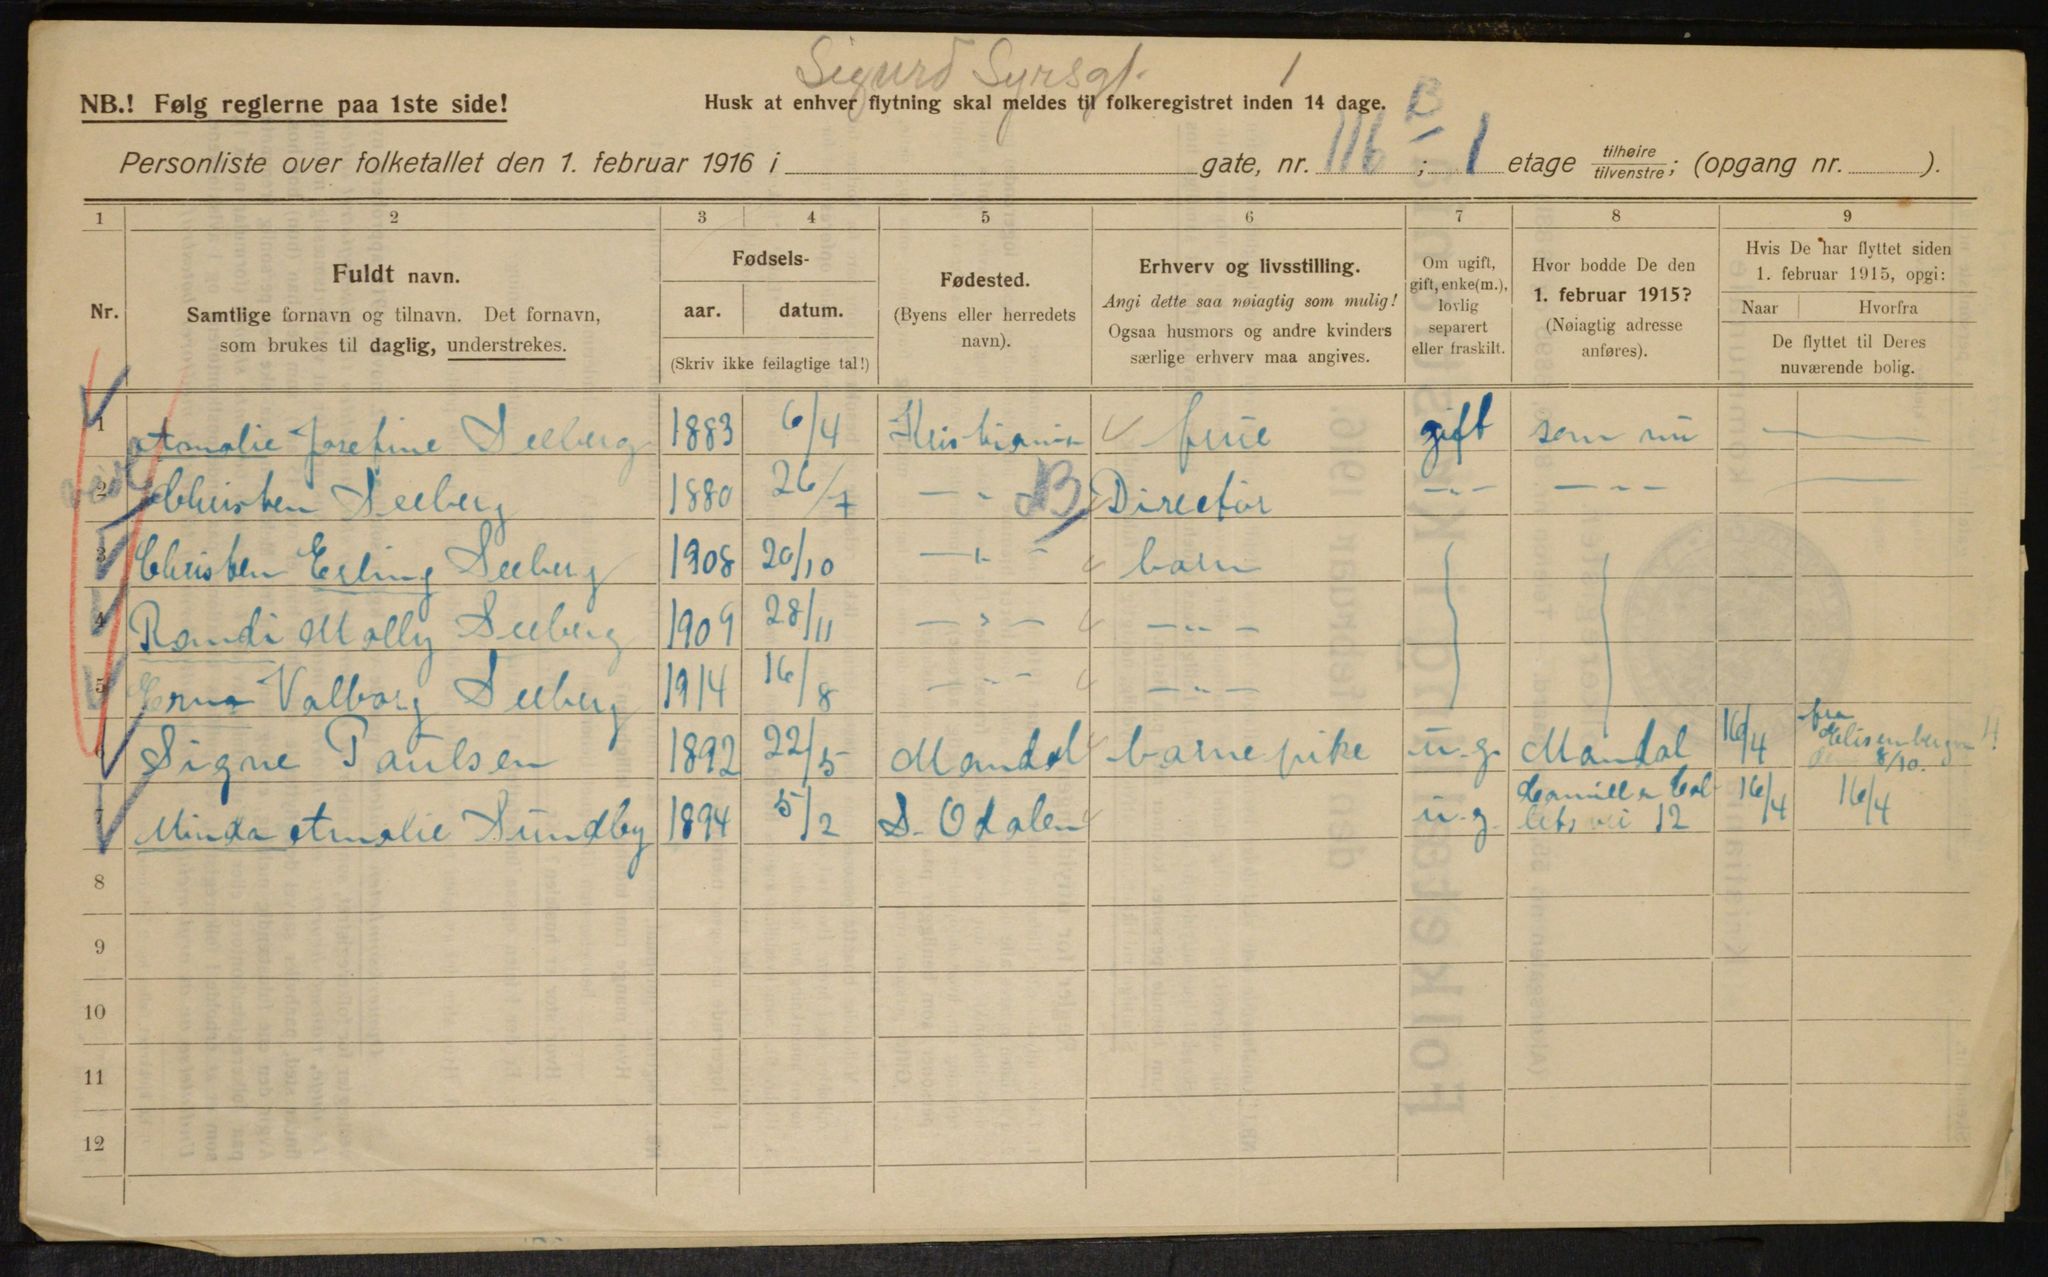 Sigurd Syrsgt. 1
NB.! Følg reglerne paa 1ste side!
Husk at enhver flytning skal meldes til folkeregistret inden 14 dage.
Personliste over folketallet den 1. februar 1916 i gate, nr. 116 B; 1 etage tilhøire tilvenstre; (opgang nr. ).
1 2 3 4 5 6 7 8 9
Nr.
Fuldt navn.
Samtlige fornavn og tilnavn. Det fornavn,
som brukes til daglig, understrekes.
Fødsels-
aar. datum.
(Skriv ikke feilagtige tal!)
Fødested.
(Byens eller herredets
navn).
Erhverv og livsstilling.
Angi dette saa nøiagtig som mulig!
Ogsaa husmors og andre kvinders
særlige erhverv maa angives.
Om ugift,
gift, enke(m.),
lovlig
separert
eller fraskilt.
Hvor bodde De den
1. februar 1915?
(Nøiagtig adresse
anføres).
Hvis De har flyttet siden
1. februar 1915, opgi:
Naar Hvorfra
De flyttet til Deres
nuværende bolig.
1 Amalie Josefine Seeberg 1883 6/4 Kristiania frue gift som nu —
2 Christen Seeberg 1880 26/7 — " B Directør — " — — " — —
3 Christen Erling Seeberg 1908 20/10 — " — barn
4 Randi Molly Seeberg 1909 28/11 — " — — " —
5 Erna Valborg Seeberg 1914 16/8 — " — — " —
6 Signe Paulsen 1892 22/5 Mandal barnepike u.g. Mandal 16/4 fra
8/10.
7 Minda Amalie Sundby 1894 5/2 S. Odalen u.g. Camilla Col-
lets vei 12 16/4 16/4
8
9
10
11
12